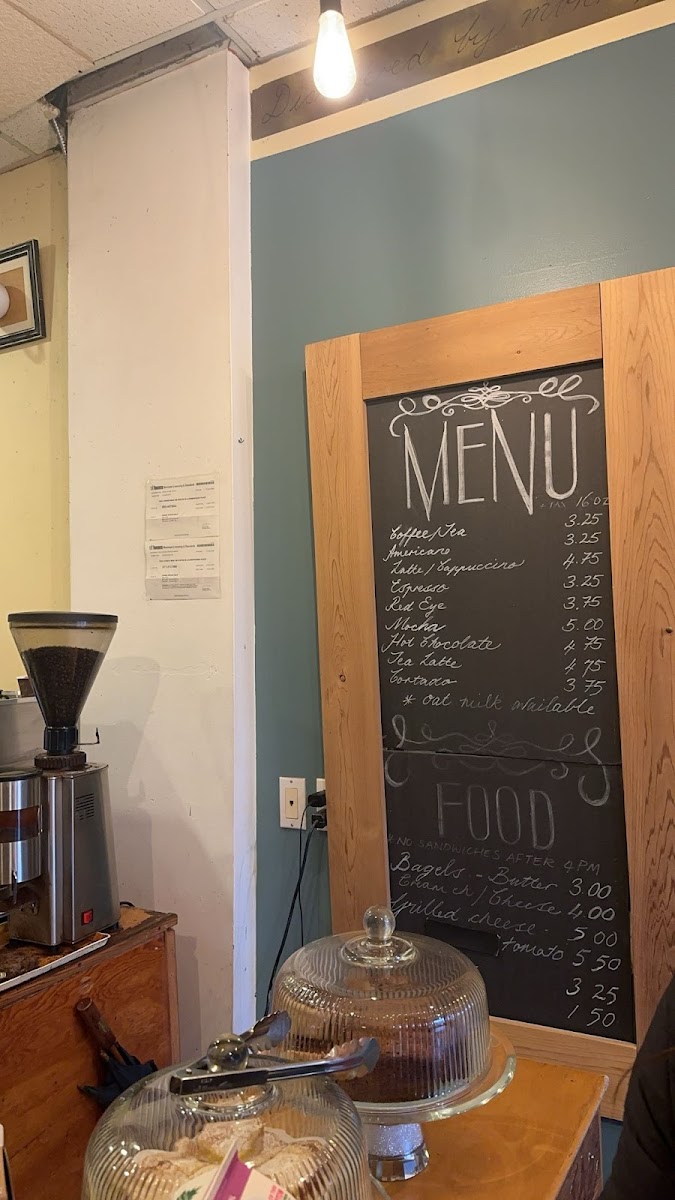 Discovered by
MENU
+ TAX 16.oz
Coffee/Tea 3.25
Americano 3.25
Latte/Cappuccino 4.75
Espresso 3.25
Red Eye 3.75
Mocha 5.00
Hot Chocolate 4.75
Tea Latte 4.75
Cortado 3.75
* oat milk available
FOOD
NO SANDWICHES AFTER 4PM
Bagels - Butter 3.00
/Cheese 4.00
Grilled cheese. 5.00
tomato 5.50
3.25
1.50